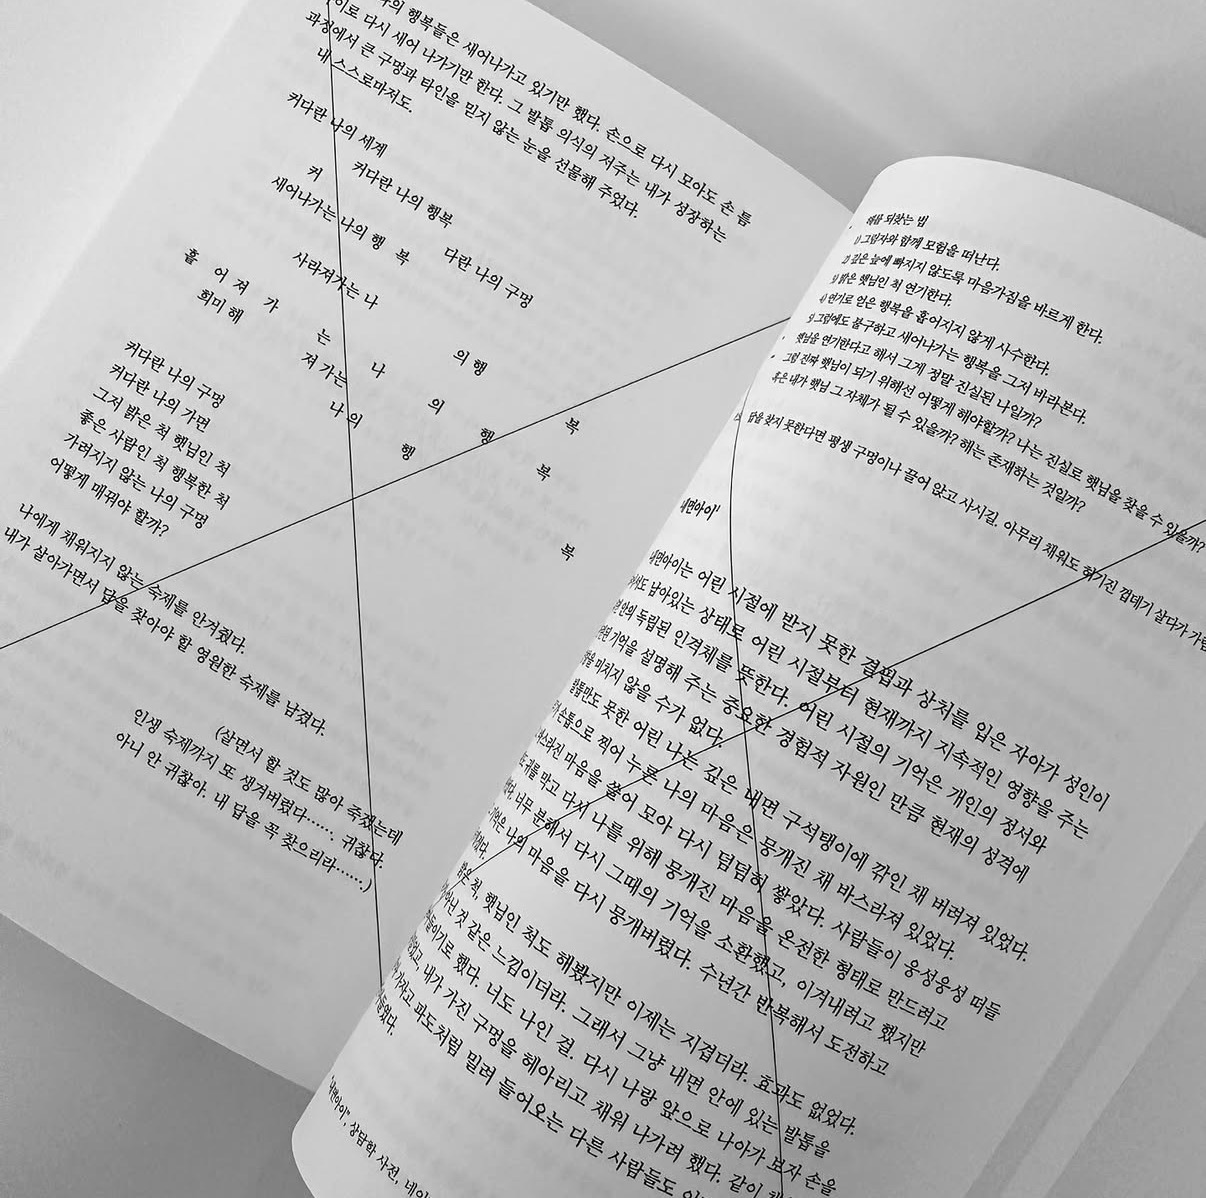 행복들은 새어나가고 있기만 했다. 손으로 다시 모아도 손 틈
다시 새어 나가기만 한다. 그 발톱 의식의 저주는 내가 성장하는
과정에서 큰 구멍과 타인을 믿지 않는 눈을 선물해 주었다.
내 스스로마저도.
커다란 나의 세계
커다란 나의 행복
커 다란 나의 구멍
새어나가는 나의 행 복
사라져가는 나 의 행 복
흩 어 져 가 는 나 의 행 복
희미 해 져 가는 나 의 행 복
커다란 나의 구멍
커다란 나의 가면
그저 밝은 척 햇님인 척
좋은 사람인 척 행복한 척
가려지지 않는 나의 구멍
어떻게 메꿔야 할까?
나에게 채워지지 않는 숙제를 안겨줬다.
내가 살아가면서 답을 찾아야 할 영원한 숙제를 남겼다.
(살면서 할 것도 많아 죽겠는데
인생 숙제까지 또 생겨버렸다……. 귀찮다.
아니 안 귀찮아. 내 답을 꼭 찾으리라…….)
해를 되찾는 법
1) 그림자와 함께 모험을 떠난다.
2) 깊은 늪에 빠지지 않도록 마음가짐을 바르게 한다.
3) 밝은 햇님인 척 연기한다.
4) 연기로 얻은 행복을 흩어지지 않게 사수한다.
5) 그럼에도 불구하고 새어나가는 행복을 그저 바라본다.
햇님을 연기한다고 해서 그게 정말 진실된 나일까?
그럼 진짜 햇님이 되기 위해선 어떻게 해야할까? 나는 진실로 햇님을 찾을 수 있을까?
혹은 내가 햇님 그 자체가 될 수 있을까? 해는 존재하는 것일까?
답을 찾지 못한다면 평생 구멍이나 끌어 안고 사시길. 아무리 채워도 허기진 껍데기 살다가 가
내면아이¹
내면아이는 어린 시절에 받지 못한 결핍과 상처를 입은 자아가 성인이
남아있는 상태로 어린 시절부터 현재까지 지속적인 영향을 주는
안의 독립된 인격체를 뜻한다. 어린 시절의 기억은 개인의 정서와
기억을 설명해 주는 중요한 경험적 자원인 만큼 현재의 성격에
미치지 않을 수가 없다.
발톱만도 못한 어린 나는 깊은 내면 구석탱이에 깎인 채 버려져 있었다.
손톱으로 찍어 누른 나의 마음은 뭉개진 채 바스라져 있었다.
바스라진 마음을 쓸어 모아 다시 덤덤히 쌓았다. 사람들이 웅성웅성 떠들
귀를 막고 다시 나를 위해 뭉개진 마음을 온전한 형태로 만드려고
너무 분해서 다시 그때의 기억을 소환했고, 이겨내려고 했지만
기억은 나의 마음을 다시 뭉개버렸다. 수년간 반복해서 도전하고
밝은 척, 햇님인 척도 해봤지만 이제는 지겹더라. 효과도 없었다.
아닌 것 같은 느낌이더라. 그래서 그냥 내면 안에 있는 발톱을
했다. 너도 나인 걸. 다시 나랑 앞으로 나아가 보자 손을
내가 가진 구멍을 헤아리고 채워 나가려 했다. 같이
파도처럼 밀려 들어오는 다른 사람들도
"내면아이", 상담학 사전,